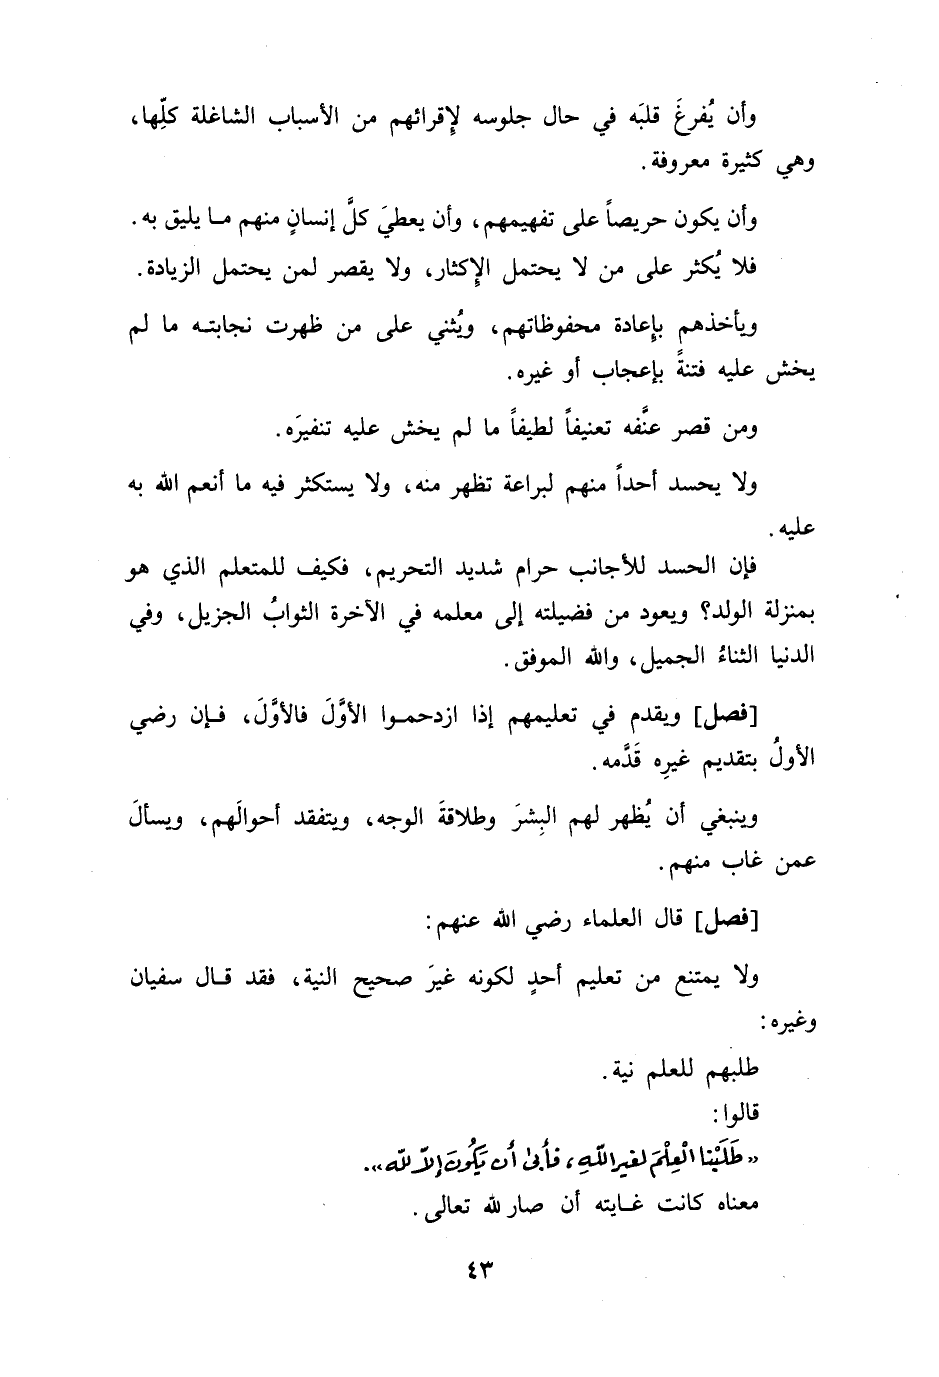 وأن يُفرغَ قلبَه في حال جلوسه لإقرائهم من الأسباب الشاغلة كلِّها،
وهي كثيرة معروفة.
وأن يكون حريصاً على تفهيمهم، وأن يعطيَ كلَّ إنسانٍ منهم ما يليق به.
فلا يُكثر على من لا يحتمل الإكثار، ولا يقصر لمن يحتمل الزيادة.
ويأخذهم بإعادة محفوظاتهم، ويُثني على من ظهرت نجابته ما لم
يخش عليه فتنةً بإعجاب أو غيره.
ومن قصر عنَّفه تعنيفاً لطيفاً ما لم يخش عليه تنفيرَه.
ولا يحسد أحداً منهم لبراعة تظهر منه، ولا يستكثر فيه ما أنعم الله به
عليه.
فإن الحسد للأجانب حرام شديد التحريم، فكيف للمتعلم الذي هو
بمنزلة الولد؟ ويعود من فضيلته إلى معلمه في الآخرة الثوابُ الجزيل، وفي
الدنيا الثناءُ الجميل، والله الموفق.
[فصل] ويقدم في تعليمهم إذا ازدحموا الأوَّلَ فالأوَّلَ، فإن رضي
الأولُ بتقديم غيرِه قَدَّمه.
وينبغي أن يُظهر لهم البِشرَ وطلاقةَ الوجه، ويتفقد أحوالَهم، ويسألَ
عمن غاب منهم.
[فصل] قال العلماء رضي الله عنهم:
ولا يمتنع من تعليم أحدٍ لكونه غيرَ صحيح النية، فقد قال سفيان
وغيره:
طلبهم للعلم نية.
قالوا:
«طَلَبْنا الْعِلْمَ لغيرِ اللّهِ، فأبى أن يَكُونَ إلاّ للّه».
معناه كانت غايته أن صار لله تعالى.
٤٣